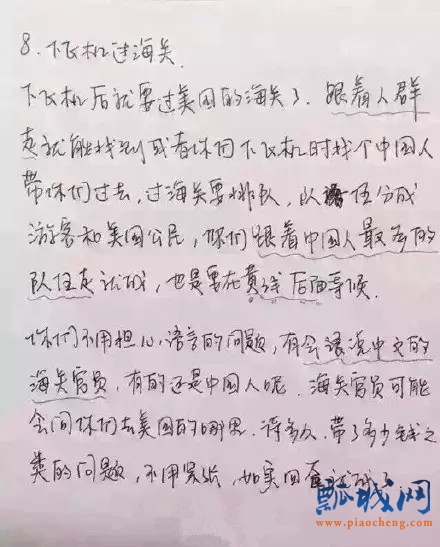 8. 下飞机过海关.
下飞机后就要过美国的海关了. 跟着人群
走就能找到或者你们下飞机时找个中国人
带你们过去, 过海关要排队, 队伍分成
游客和美国公民, 你们跟着中国人最多的
队伍走就成, 也是要在黄线后面等候.
你们不用担心语言的问题, 有会说中文的
海关官员, 有的还是中国人呢. 海关官员可能
会问你们去美国的哪里. 待多久. 带了多少钱之
类的问题, 不用紧张, 如实回答就成了
瓢城网
www.piaocheng.com